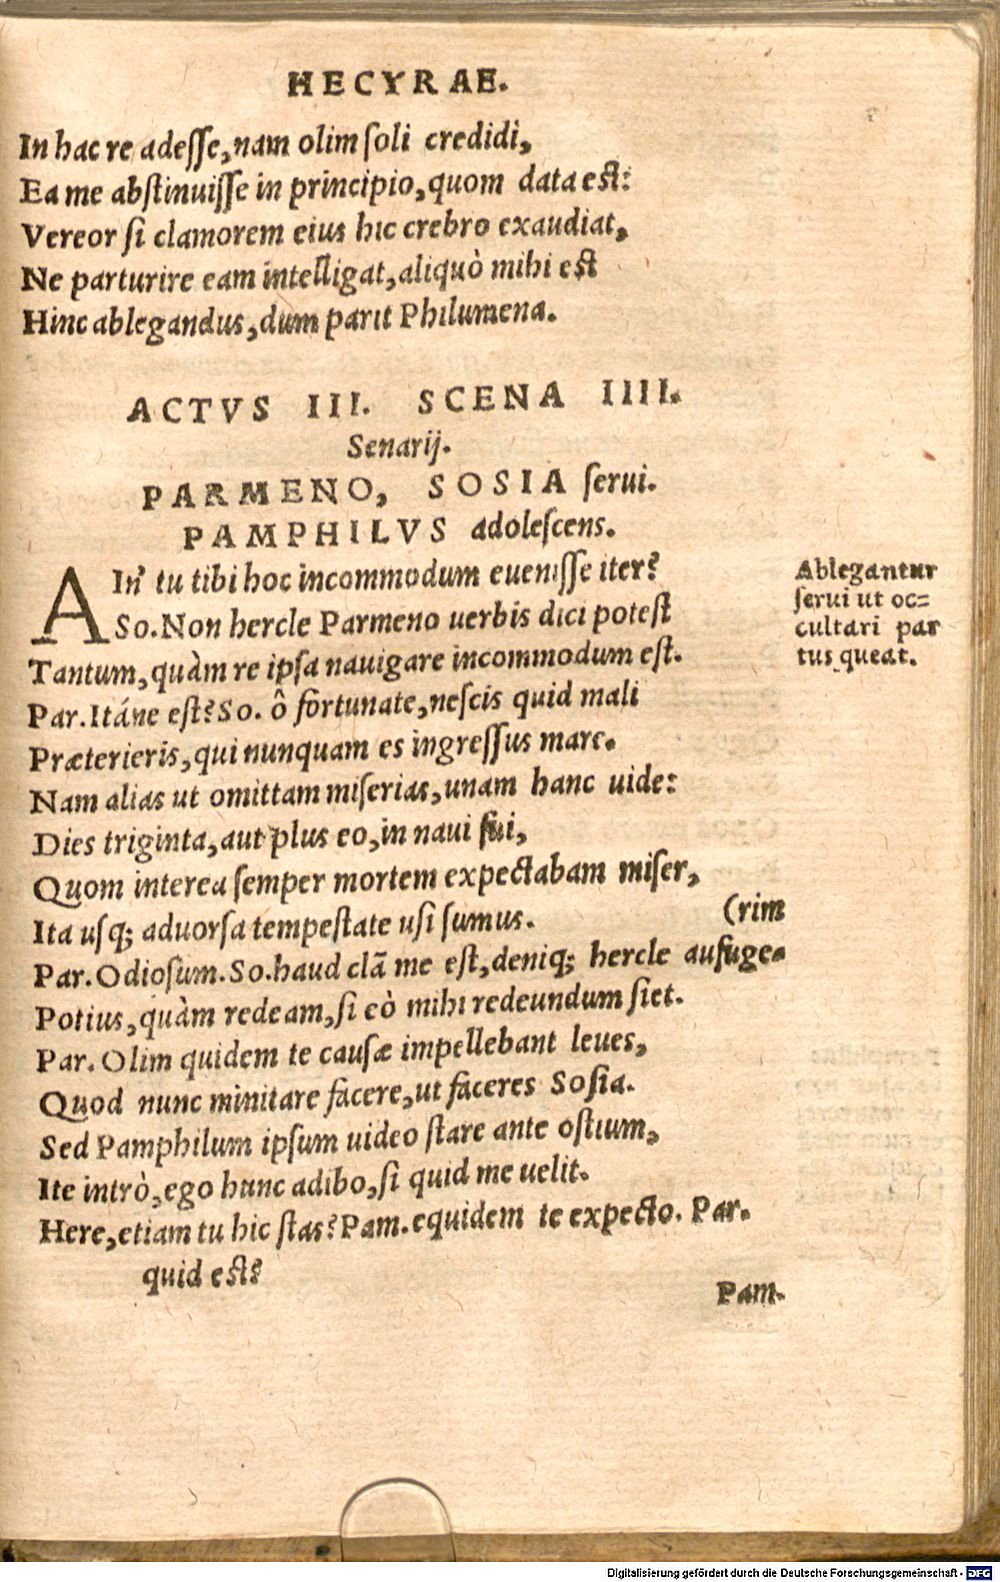 HECYRAE.
In hac re adesse, nam olim soli credidi,
Ea me abstinuisse in principio, quom data est:
Vereor si clamorem eius hic crebro exaudiat,
Ne parturire eam intelligat, aliquò mihi est
Hinc ablegandus, dum parit Philumena.
ACTVS III. SCENA IIII.
Senarij.
PARMENO, SOSIA serui.
PAMPHILVS adolescens.
AIn' tu tibi hoc incommodum euenisse iter?
So. Non hercle Parmeno uerbis dici potest
Tantum, quàm re ipsa nauigare incommodum est.
Par. Itáne est? So. ô fortunate, nescis quid mali
Præterieris, qui nunquam es ingressus mare.
Nam alias ut omittam miserias, unam hanc uide:
Dies triginta, aut plus eo, in naui fui,
Quom interea semper mortem expectabam miser,
Ita usq; aduorsa tempestate usi sumus.
(rim
Par. Odiosum. So. haud clā me est, deniq; hercle aufuge-
Potius, quàm redeam, si eò mihi redeundum siet.
Par. Olim quidem te causæ impellebant leues,
Quod nunc minitare facere, ut faceres Sosia.
Sed Pamphilum ipsum uideo stare ante ostium,
Ite intrò, ego hunc adibo, si quid me uelit.
Here, etiam tu hic stas? Pam. equidem te expecto. Par.
quid est?
Pam.
Ablegantur
serui ut oc=
cultari par
tus queat.
Digitalisierung gefördert durch die Deutsche Forschungsgemeinschaft - DFG